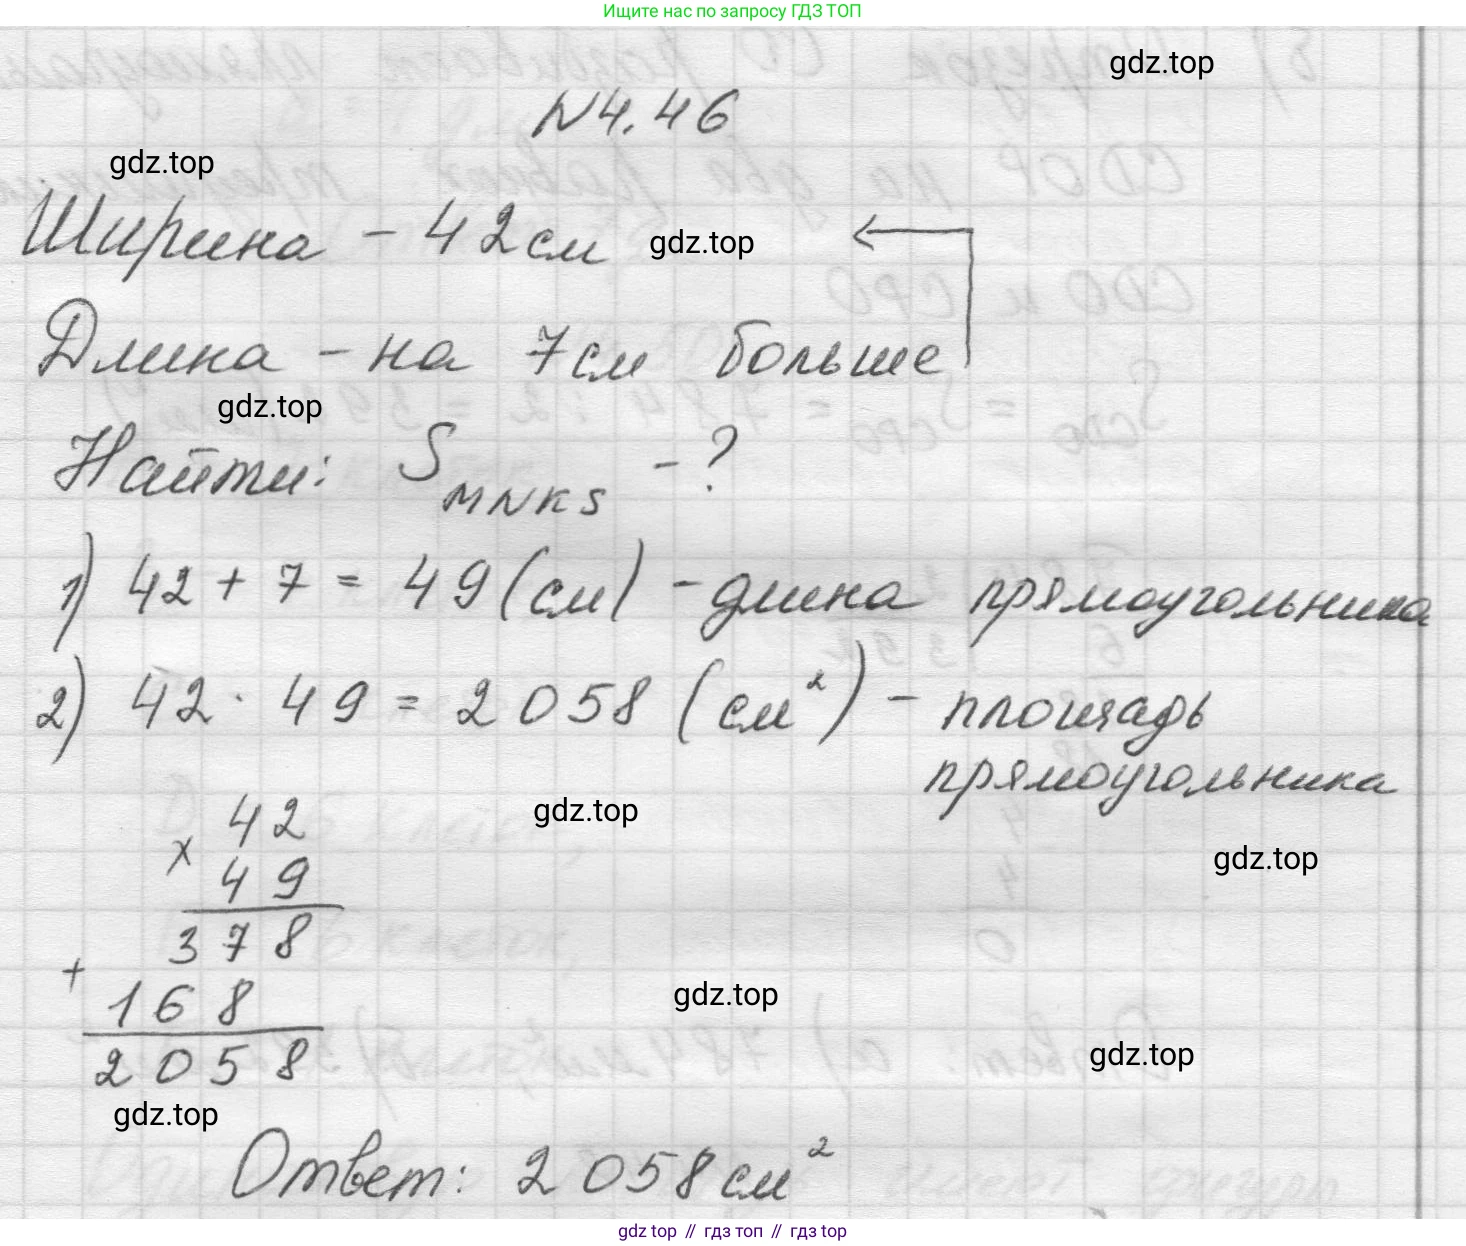 Ищите нас по запросу ГДЗ ТОП
gdz.top
N4.46
gdz.top
Ширина - 42см
gdz.top
Длина - на 7см больше
gdz.top
Найти: S MNKS - ?
1) 42 + 7 = 49 (см) - длина прямоугольника
2) 42 · 49 = 2058 (см²) - площадь
прямоугольника
gdz.top
x 42
49
gdz.top
378
+
168
gdz.top
2058
gdz.top
gdz.top
Ответ: 2058 см²
gdz top // гдз топ // гдз top